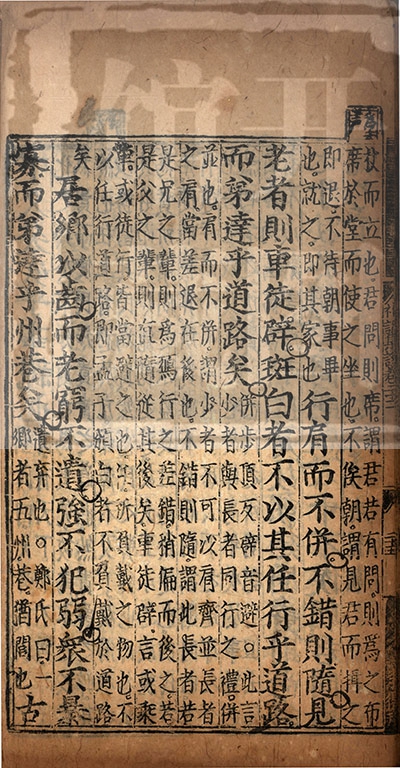 杖而立也君問則席謂君若有問則為之布
席於堂而使之坐也不俟朝謂見君而揖之
即退不待朝事畢
也就之即其家也
行肩而不併不錯則隨見
老者則車徒辟斑白者不以其任行乎道路
而弟達乎道路矣
併步頂反辟音避○此言
少者與長者同行之禮併
並也肩而不併謂少者不可以肩齊並長者
之肩當差退在後也不錯則隨謂此長者若
是兄之輩則為鴈行之差錯稍偏而後之若
是父之輩則直隨從其後矣車徒辟言或乘
車或徒行皆當避之也任所負戴之物也不
以任行道路即孟子頒白者不負戴於道路
矣
居鄉以齒而老窮不遺強不犯弱衆不暴
寡而弟達乎州巷矣
遺棄也鄭氏曰一
鄉者五州巷猶閭也
古